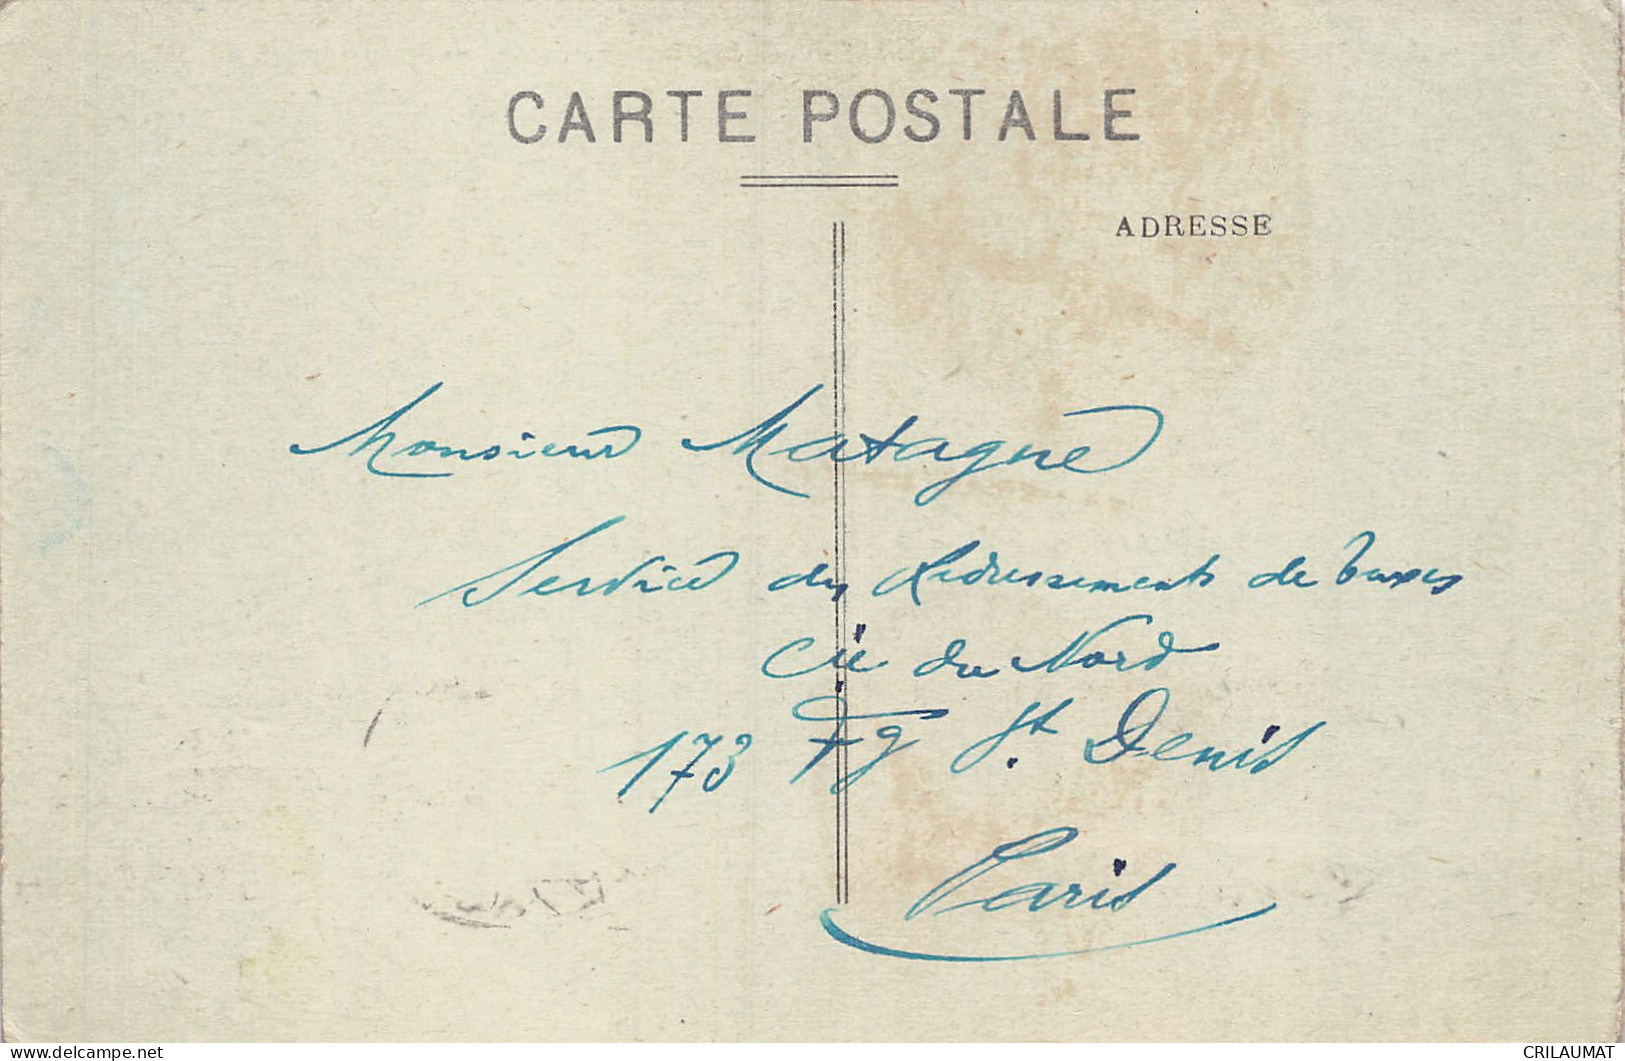 CARTE POSTALE
ADRESSE
Monsieur Matagne
Service des Redressements de taxes
Cie du Nord
173 Fg St. Denis
Paris
delcampe.net
CRILAUMAT